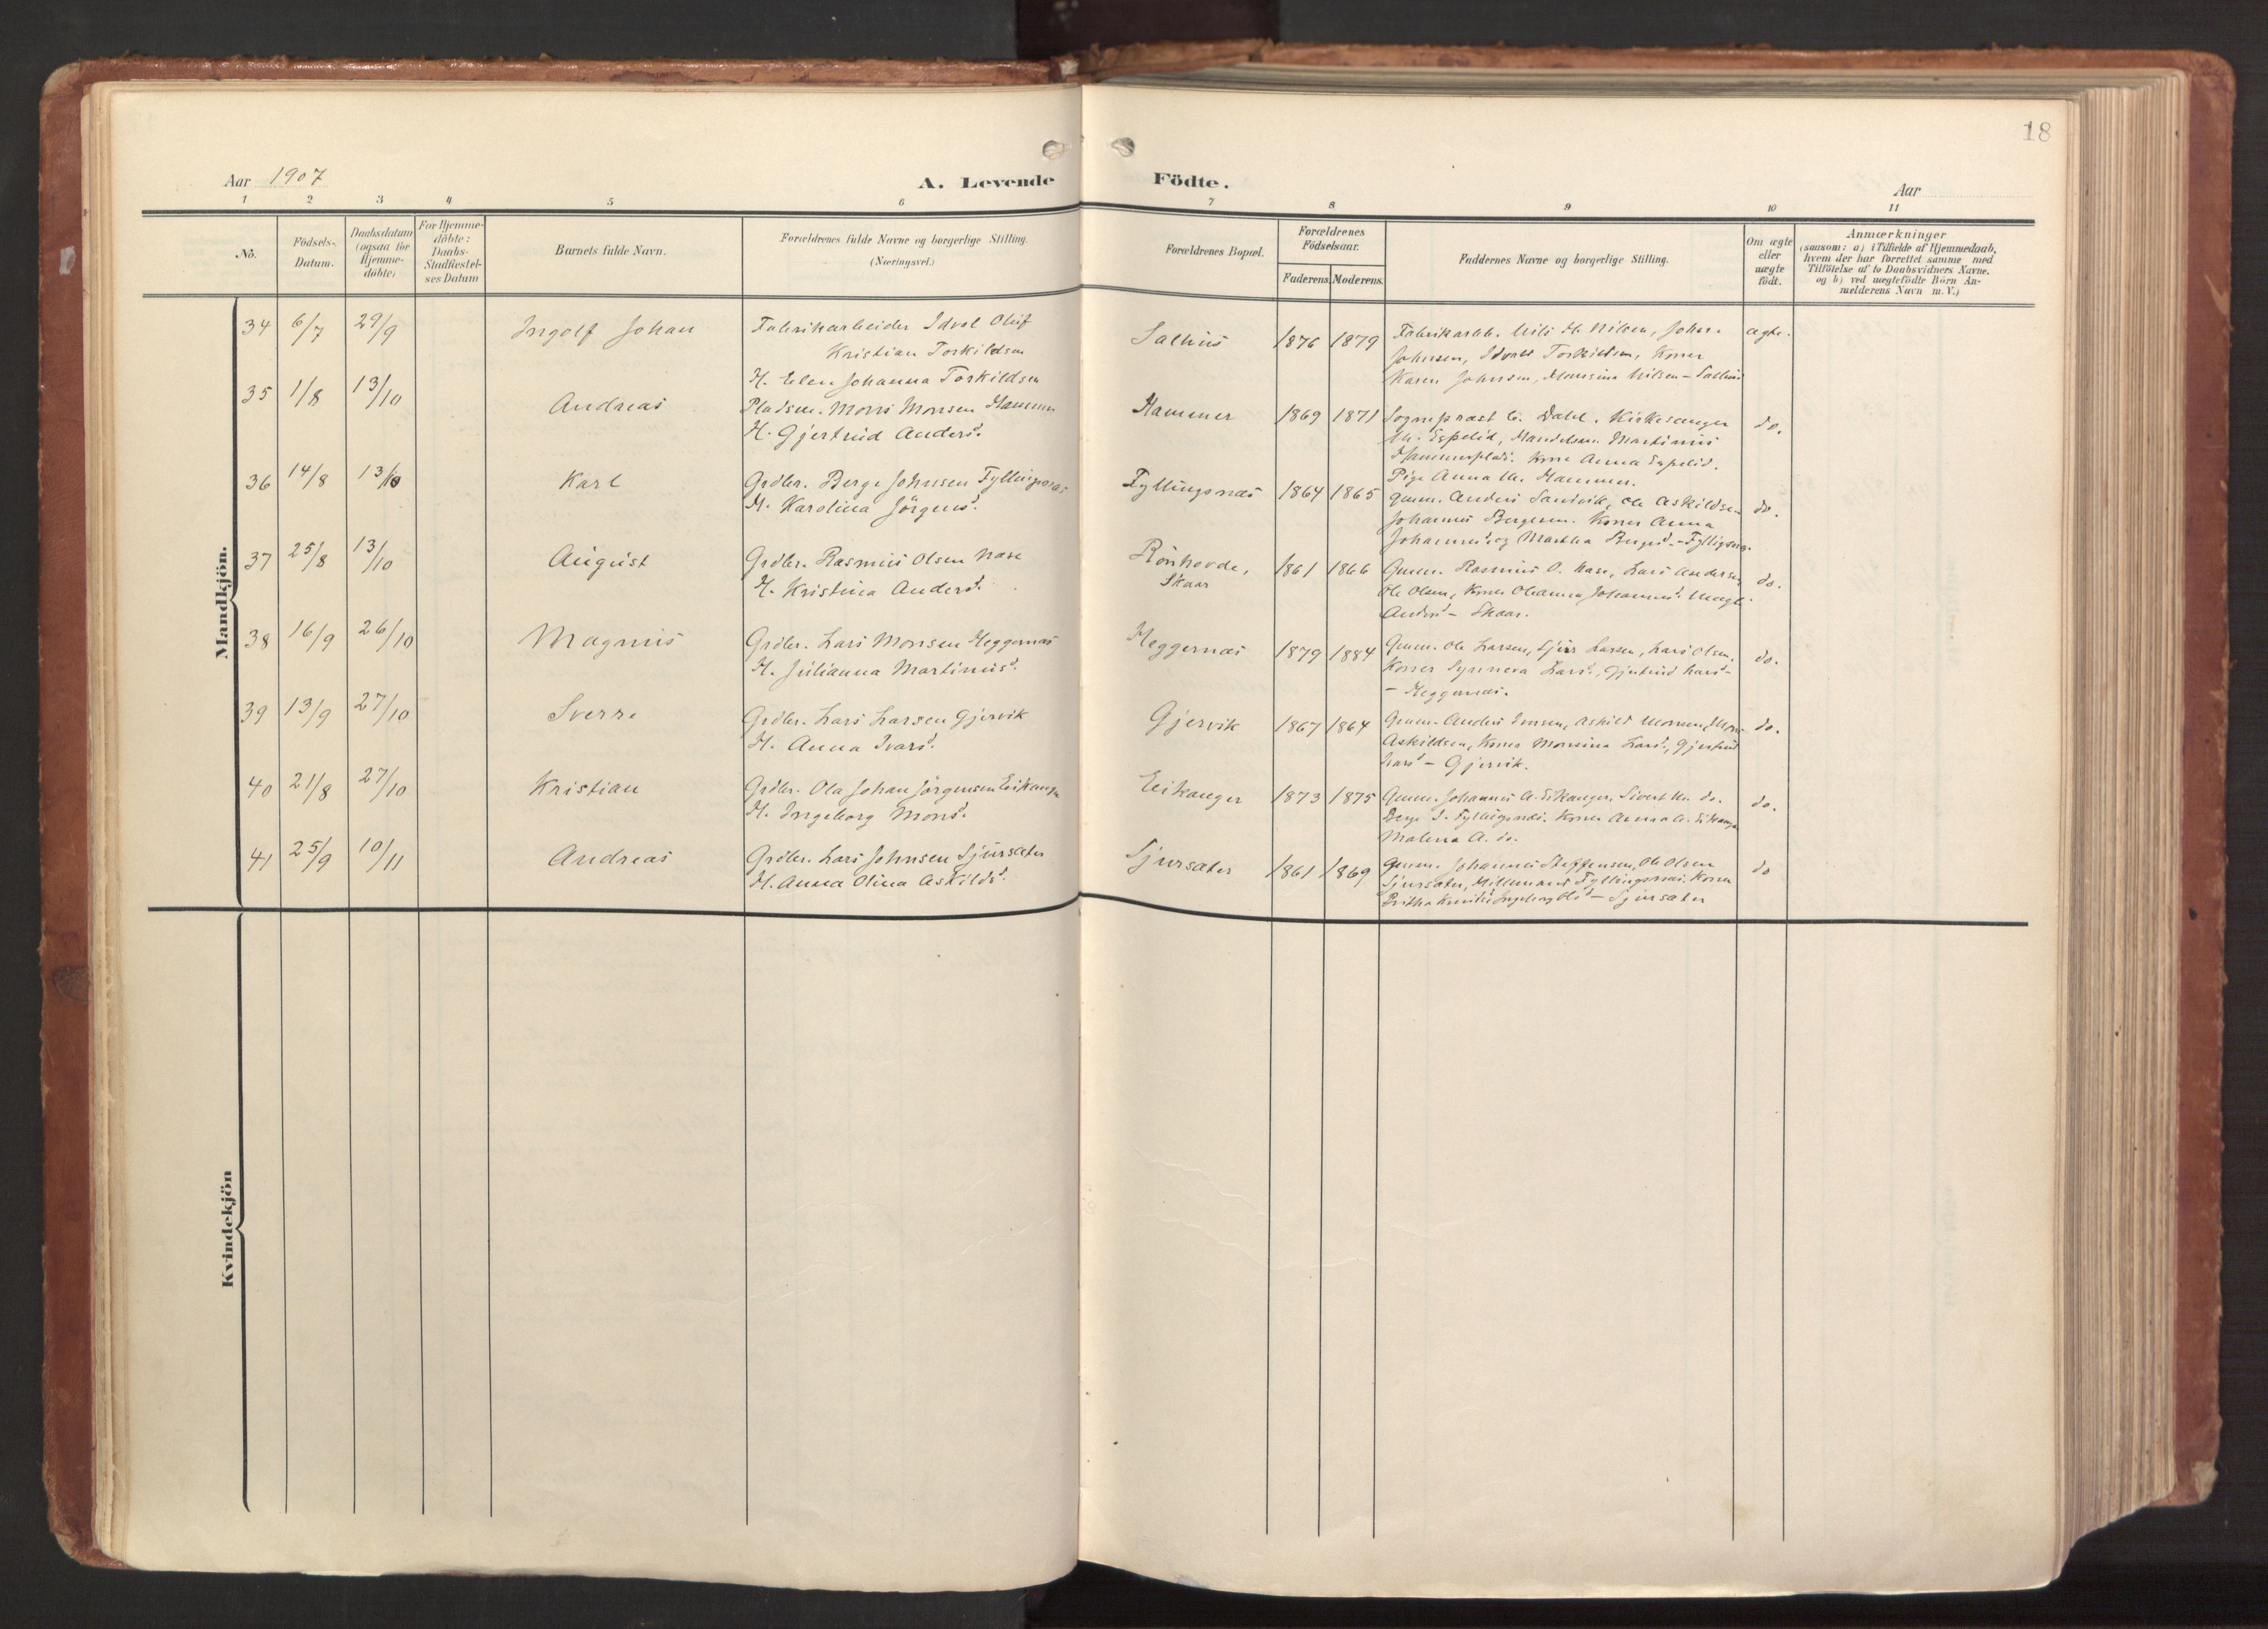 18
Aar 1907
A. Levende Födte.
Aar
1 2 3 4 5 6 7 8 9 10 11
No.
Födsels-Datum.
Daabsdatum (ogsaa for Hjemme-döbte)
For Hjemme-döbte: Daabs-Stadfæstel-ses Datum
Barnets fulde Navn.
Forældrenes fulde Navne og borgerlige Stilling.
(Næringsvei.)
Forældrenes Bopæl.
Forældrenes Födselsaar.
Faderens. Moderens.
Faddernes Navne og borgerlige Stilling.
Om ægte eller uægte födt.
Anmærkninger
(saasom: a) i Tilfælde af Hjemmedaab,
hvem der har forrettet samme med
Tilföielse af to Daabsvidners Navne.
og b) ved uægtefödte Börn An-
melderens Navn m. V.)
Mandkjön.
34 6/7 29/9 Ingolf Johan Fabrikarbeider Idvol Oluf
Kristian Torkildsen
H. Elen Johanna Torkildsen
Salhus 1876 1879 Fabrikarb. Nils H. Nilsen, Johan
Johnsen, Torkildsen, Koner
Karen Johnsen, Monsina Nilsen - Salhus
ægte.
35 1/8 13/10 Andreas Pladsm. Mons Monsen Hammer
H. Gjertrud Andersd.
Hammer 1869 1871 Sogneprest C. Dahl, Kirkesanger
M. Espelid, Handelsm. Martinus
Hammersplads. Kone Anna Espelid.
Pige Anna M. Hammer.
do.
36 14/8 13/10 Karl Grdbr. Berge Johnsen Fyllingsnæs
H. Karolina Jörgensd.
Fyllingsnæs 1864 1865 Gmm. Anders Sandvik, Ole Askildsen
Johannes Bergesen. Koner Anna
Johannesd. og Martha Bergesd. - Fyllingsnæs
do.
37 25/8 13/10 August Grdbr. Rasmus Olsen Nase
H. Kristina Andersd.
Rönhovde,
Skaar
1861 1866 Gmm. Rasmus O. Nase, Lars Andersen
Ole Olsen, Koner Olianna Johannesd.
Andersd - Skaar.
do.
38 16/9 26/10 Magnus Grdbr. Lars Monsen Heggernæs
H. Julianna Martinusd.
Heggernæs 1879 1884 Gmm. Ole Larsen, Sjur Larsen, Lars Olsen.
Koner Synneva Larsd., Gjertrud Larsd -
- Heggernæs.
do.
39 13/9 27/10 Sverre Grdbr. Lars Larsen Gjervik
H. Anna Ivarsd.
Gjervik 1867 1864 Gmm. Anders Ivarsen, Askild Monsen, Mons
Askildsen, Koner Monsina Larsd., Gjertrud
Larsd - Gjervik.
do.
40 21/8 27/10 Kristian Grdbr. Ola Johan Jörgensen Eikanger
H. Ingeborg Monsd.
Eikanger 1873 1875 Gmm. Johannes A. Eikanger, Sivert M. do.
Berge J. Fyllingsnæs. Koner Anna A. Eikanger
Malena A. do.
do.
41 25/9 10/11 Andreas Grdbr. Lars Johnsen Sjursæter
H. Anna Olina Askildsd.
Sjursæter 1861 1869 Gmm. Johannes Steffensen, Ole Olsen
Sjursæter, Fyllingsnæs. Koner
Britha Ingeborg Olsd - Sjursæter
do
Kvindekjön